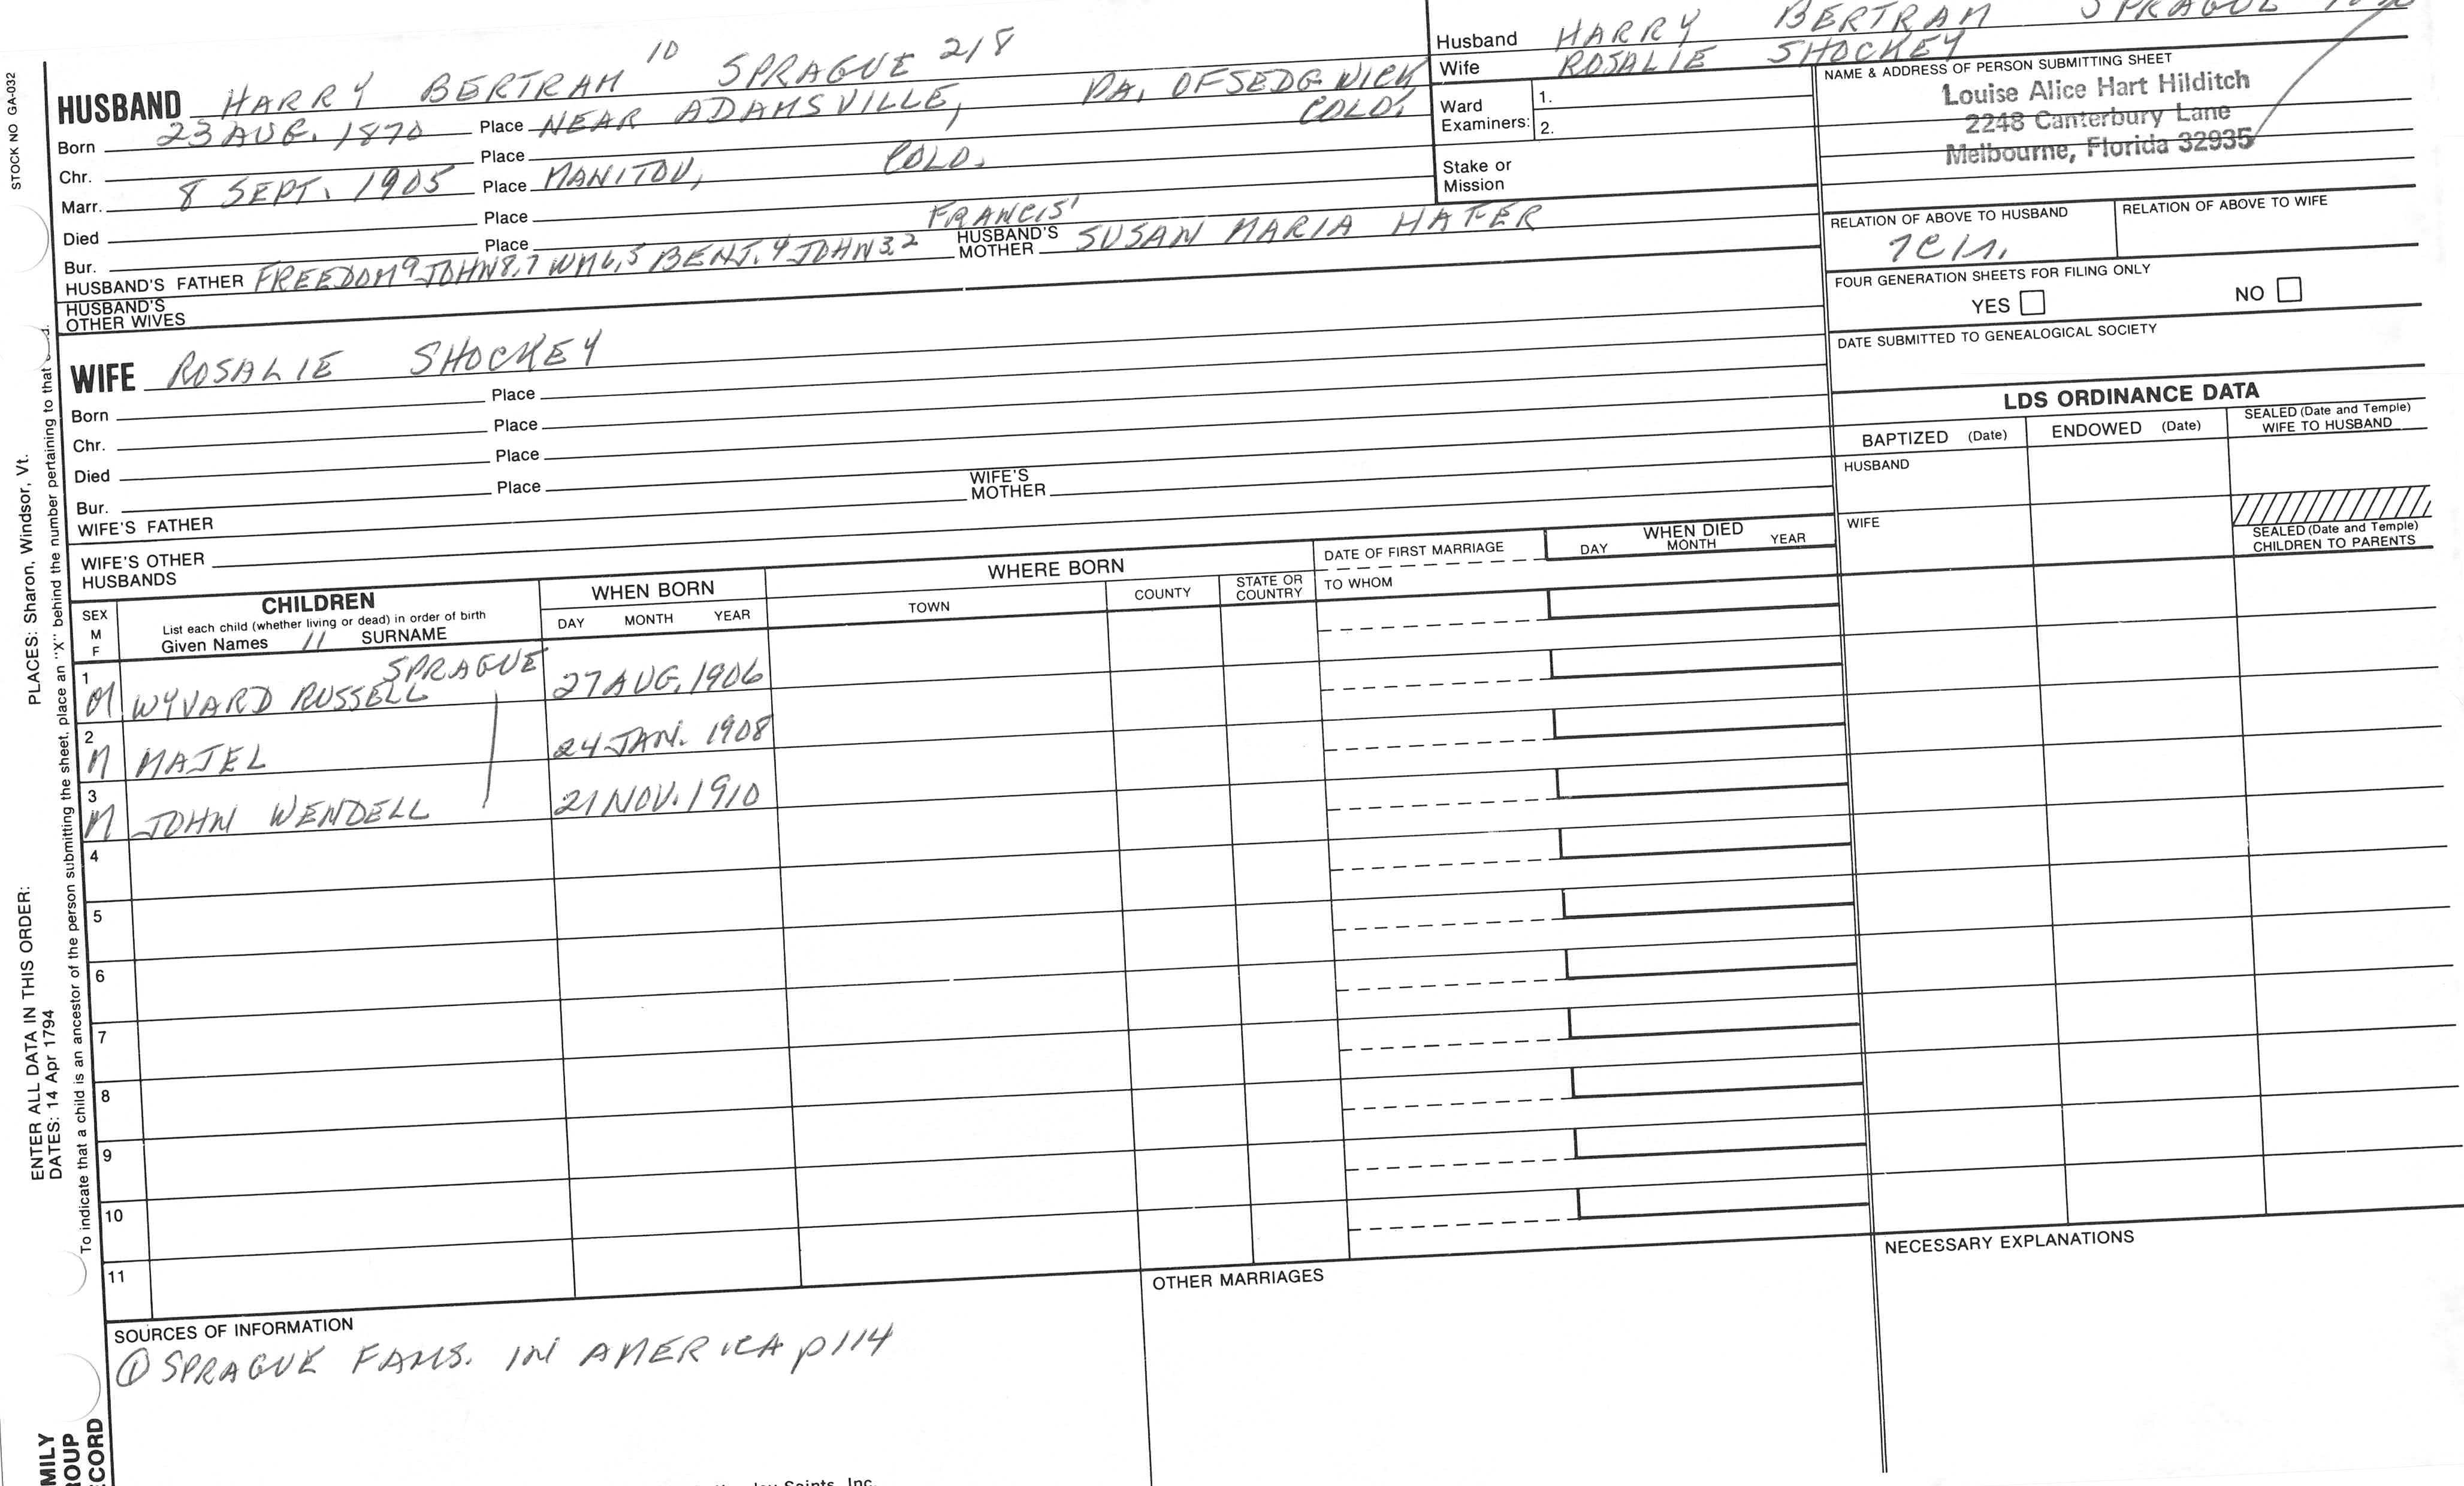 STOCK NO GA-032
PLACES: Sharon, Windsor, Vt.
ENTER ALL DATA IN THIS ORDER:
DATES: 14 Apr 1794
To indicate that a child is an ancestor of the person submitting the sheet, place an "X" behind the number pertaining to that
HUSBAND HARRY BERTRAM 10 SPRAGUE 218
Born 23 AUG. 1870 Place NEAR ADAMSVILLE, PA, OF SEDGWICK COLO.
Chr. Place
Marr. 8 SEPT. 1905 Place MANITOU, COLO.
Died Place
Bur. Place
HUSBAND'S FATHER FREEDOM 9 JOHN 8,7 WM 6,5 BENJ. 4 JOHN 3,2 FRANCIS 1 HUSBAND'S MOTHER SUSAN MARIA HAFER
HUSBAND'S OTHER WIVES
WIFE ROSALIE SHOCKEY
Born Place
Chr. Place
Died Place
Bur. Place
WIFE'S FATHER WIFE'S MOTHER
WIFE'S OTHER HUSBANDS
Husband HARRY BERTRAM SPRAGUE
Wife ROSALIE SHOCKEY
Ward Examiners: 1.
2.
Stake or Mission
NAME & ADDRESS OF PERSON SUBMITTING SHEET
Louise Alice Hart Hilditch
2248 Canterbury Lane
Melbourne, Florida 32935
RELATION OF ABOVE TO HUSBAND RELATION OF ABOVE TO WIFE
FOUR GENERATION SHEETS FOR FILING ONLY
YES NO
DATE SUBMITTED TO GENEALOGICAL SOCIETY
LDS ORDINANCE DATA
BAPTIZED (Date) ENDOWED (Date) SEALED (Date and Temple) WIFE TO HUSBAND
HUSBAND
WIFE
SEALED (Date and Temple) CHILDREN TO PARENTS
SEX M F
CHILDREN
List each child (whether living or dead) in order of birth
Given Names 11 SURNAME
WHEN BORN
DAY MONTH YEAR
WHERE BORN
TOWN COUNTY STATE OR COUNTRY
DATE OF FIRST MARRIAGE
TO WHOM
WHEN DIED
DAY MONTH YEAR
1 M WYVARD RUSSELL SPRAGUE 27 AUG. 1906
2 M MAJEL 24 JAN. 1908
3 M JOHN WENDELL 21 NOV. 1910
4
5
6
7
8
9
10
11
SOURCES OF INFORMATION
① SPRAGUE FAMS. IN AMERICA p114
OTHER MARRIAGES
NECESSARY EXPLANATIONS
Saints, Inc.